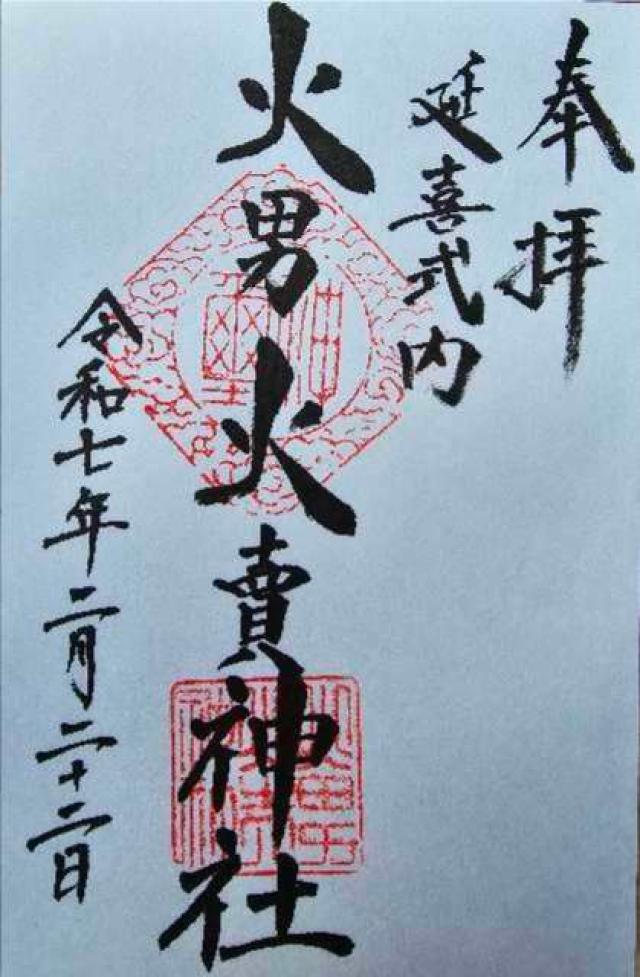 奉拝
延喜式内
火男火賣神社
令和七年二月二十二日